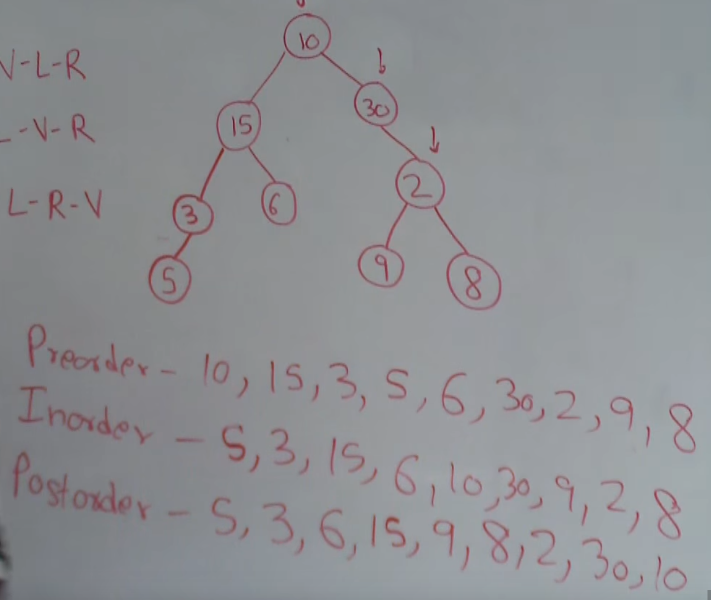 V-L-R
L-V-R
L-R-V
10
30
15
2
3
6
9
5
8
Preorder - 10, 15, 3, 5, 6, 30, 2, 9, 8
Inorder - 5, 3, 15, 6, 10, 30, 9, 2, 8
Postorder - 5, 3, 6, 15, 9, 8, 2, 30, 10